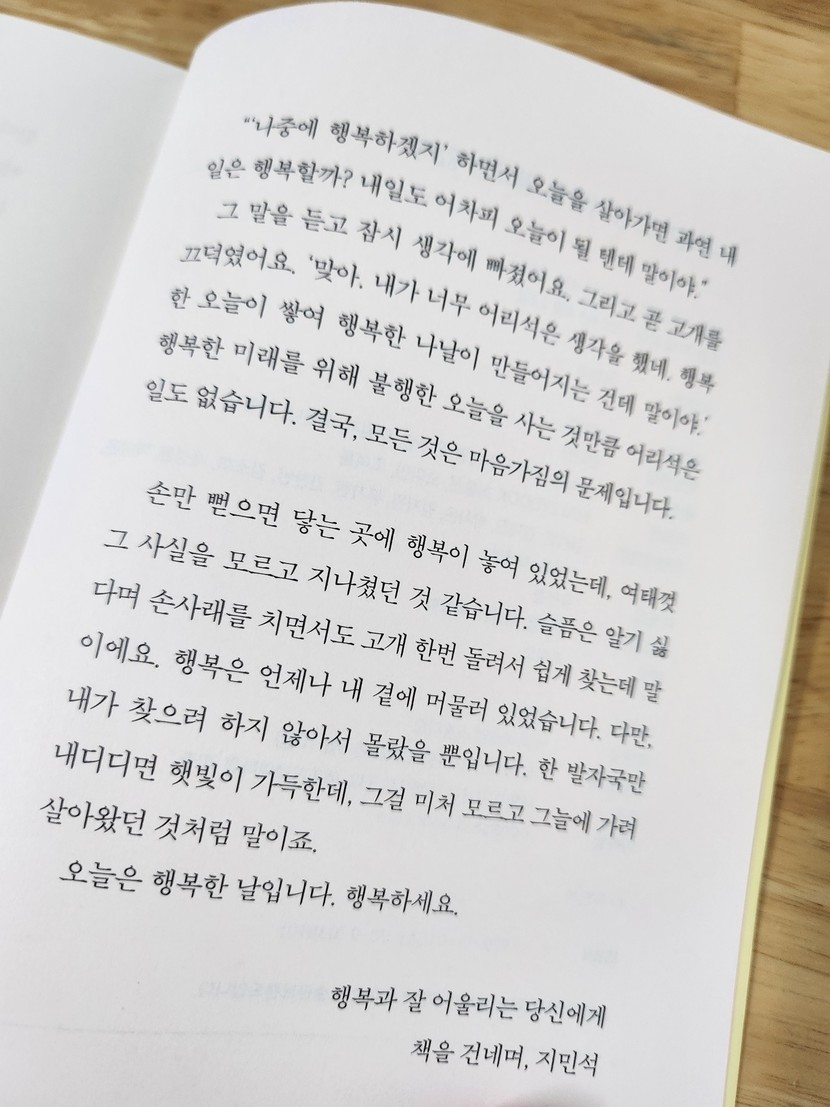 “‘나중에 행복하겠지’ 하면서 오늘을 살아가면 과연 내
일은 행복할까? 내일도 어차피 오늘이 될 텐데 말이야.”
그 말을 듣고 잠시 생각에 빠졌어요. 그리고 곧 고개를
끄덕였어요. ‘맞아. 내가 너무 어리석은 생각을 했네. 행복
한 오늘이 쌓여 행복한 나날이 만들어지는 건데 말이야.’
행복한 미래를 위해 불행한 오늘을 사는 것만큼 어리석은
일도 없습니다. 결국, 모든 것은 마음가짐의 문제입니다.
손만 뻗으면 닿는 곳에 행복이 놓여 있었는데, 여태껏
그 사실을 모르고 지나쳤던 것 같습니다. 슬픔은 알기 싫
다며 손사래를 치면서도 고개 한번 돌려서 쉽게 찾는데 말
이에요. 행복은 언제나 내 곁에 머물러 있었습니다. 다만,
내가 찾으려 하지 않아서 몰랐을 뿐입니다. 한 발자국만
내디디면 햇빛이 가득한데, 그걸 미처 모르고 그늘에 가려
살아왔던 것처럼 말이죠.
오늘은 행복한 날입니다. 행복하세요.
행복과 잘 어울리는 당신에게
책을 건네며, 지민석